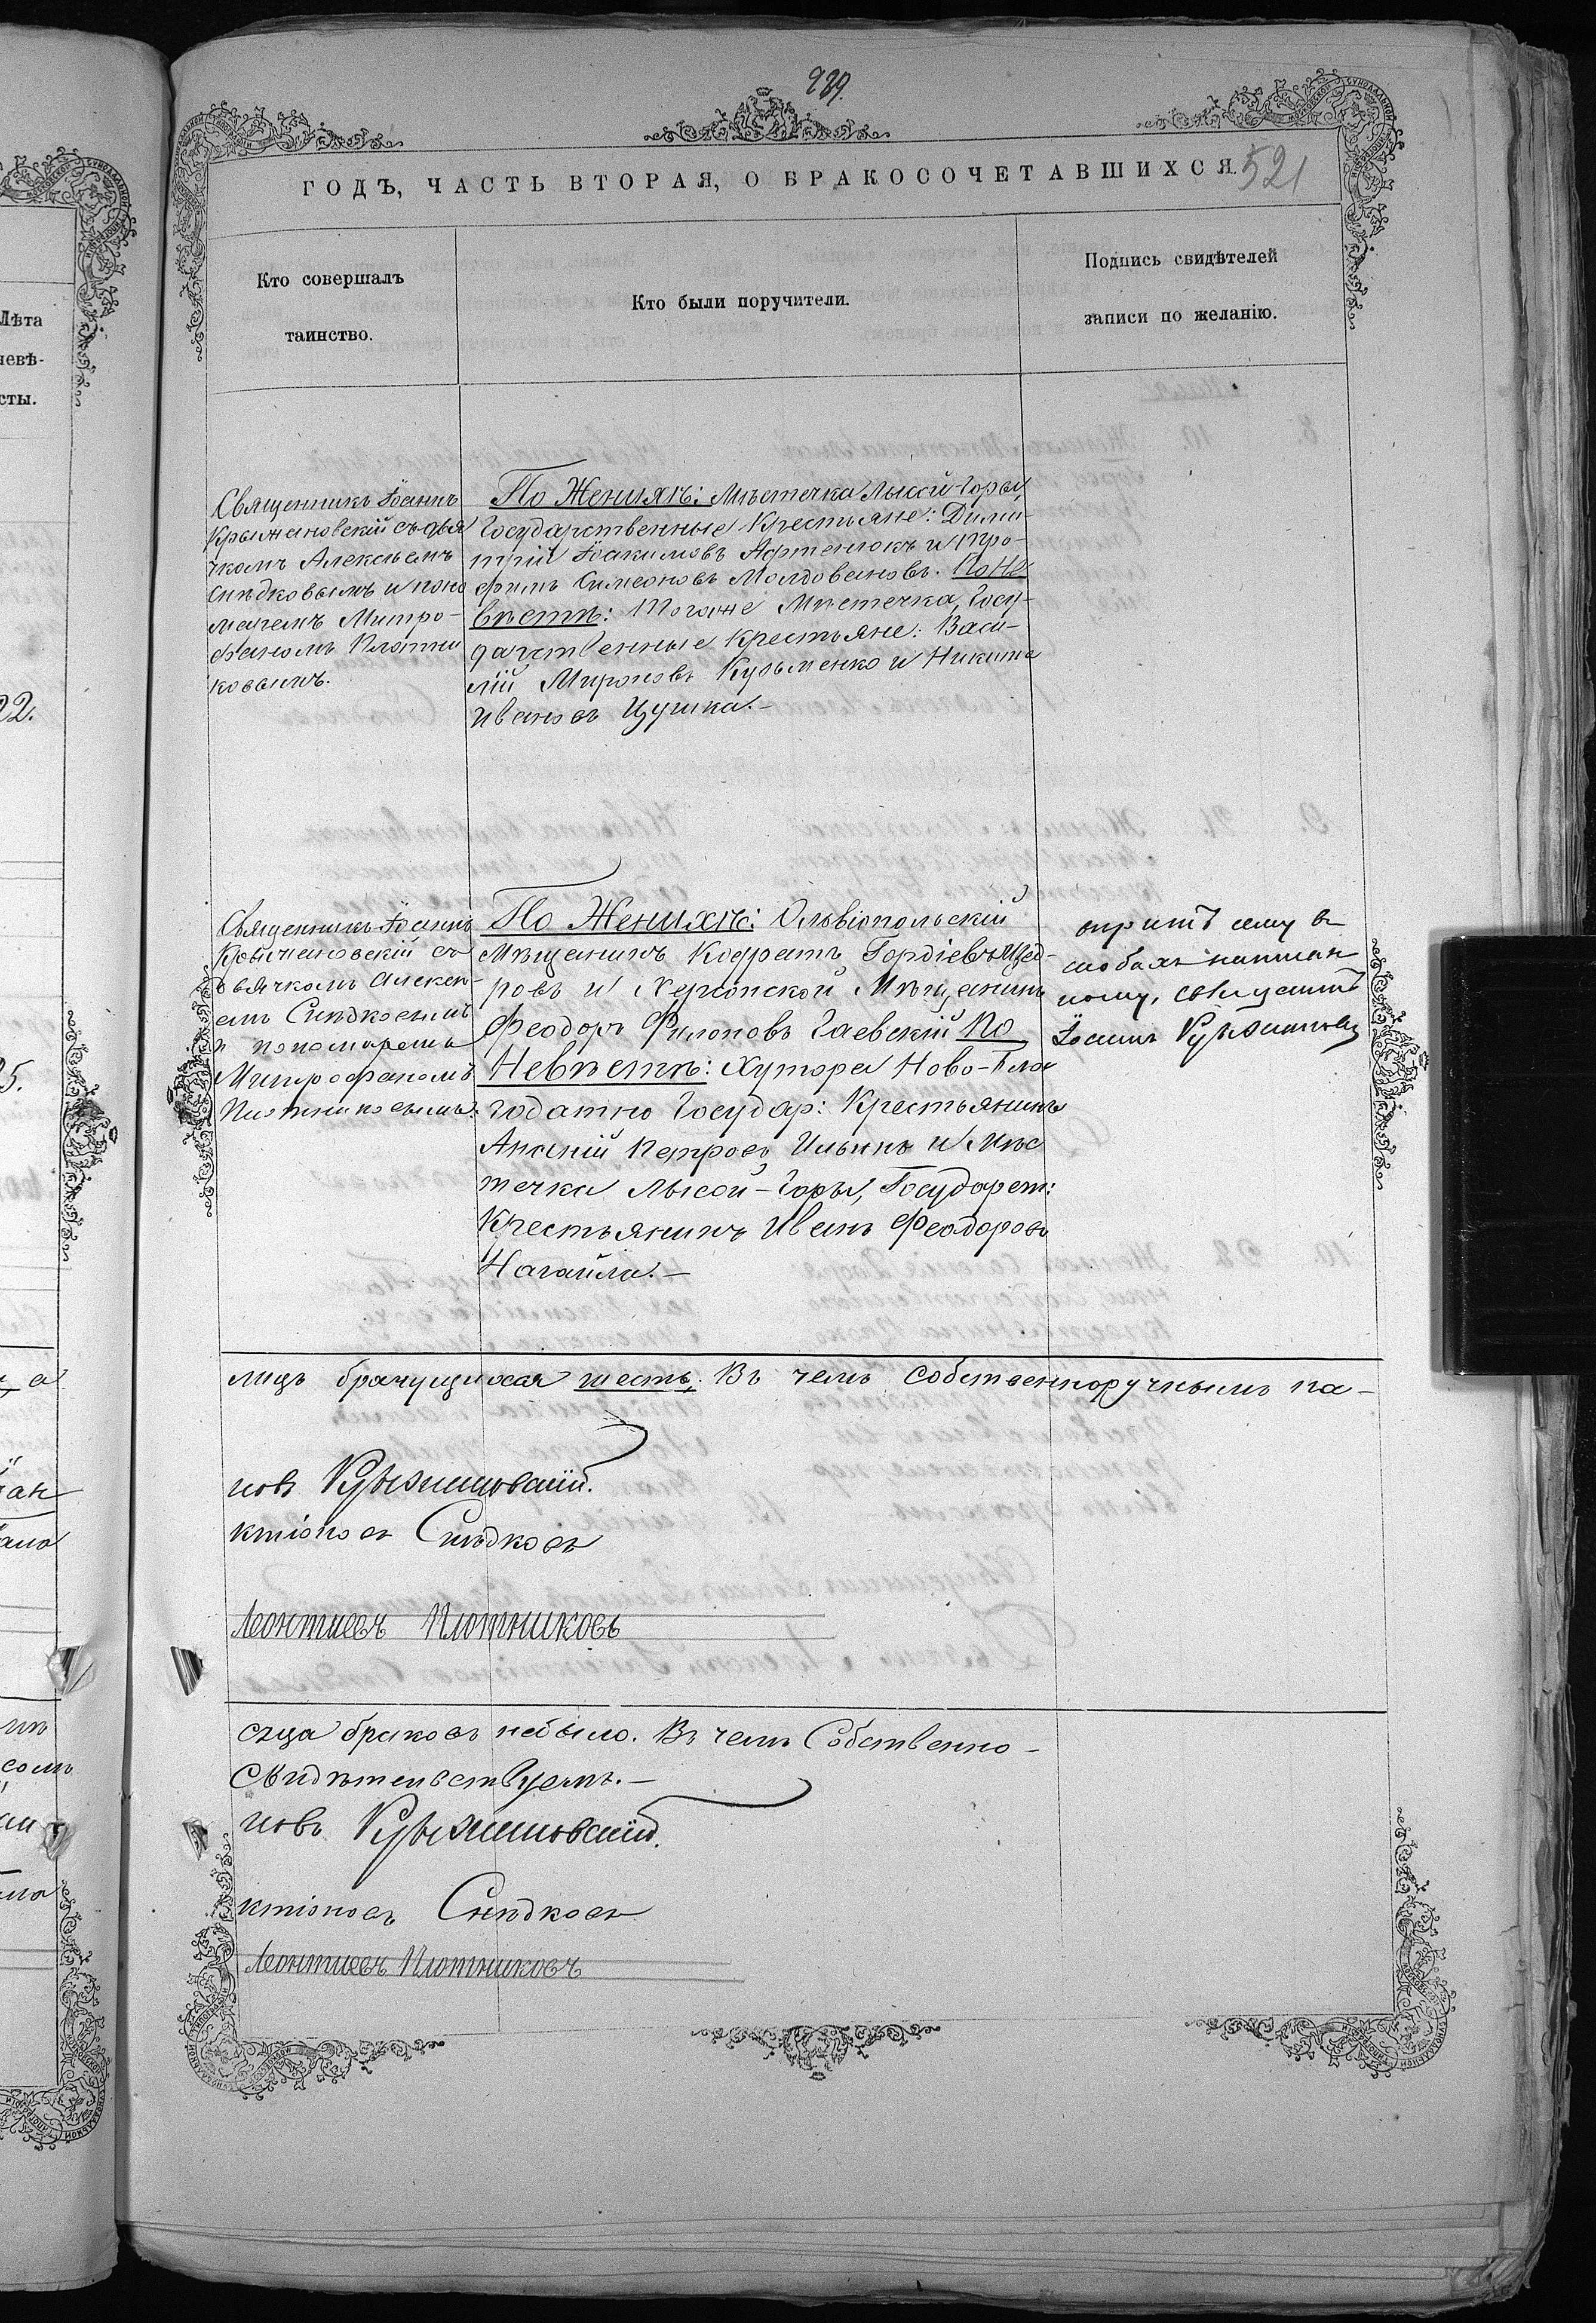 939.
521
ГОДЪ, ЧАСТЬ ВТОРАЯ, О БРАКОСОЧЕТАВШИХСЯ.
Кто совершалъ
таинство.
Кто были поручители.
Подпись свидѣтелей
записи по желанію.
Лѣта
невѣ-
сты.
22.
Священникъ Іоаннъ
Крыжановскій съ дья
чкомъ Алексѣемъ
Снѣдковымъ и поно
маремъ Митро-
фаномъ Плотни
ковымъ.
По Женихѣ: Мѣстечка Лысой-Горы,
Государственные Крестьяне: Дими-
трій Іоакимовъ Афтенюкъ и Тро-
фимъ Симеоновъ Молдовановъ. По Не
вѣстѣ: Тогоже Мѣстечка, Госу-
дарственные Крестьяне: Васи-
лій Мироновъ Кузьменко и Никита
Ивановъ Цушка.-
Священникъ Іоаннъ
Крыжановскій съ
дьячкомъ Алексѣ-
емъ Снѣдковымъ
и пономаремъ
Митрофаномъ
Плотниковымъ.
По Женихѣ: Ольвіопольскій
Мѣщанинъ Кодратъ Гордіевъ
ровъ и Херсонской Мѣщанинъ
Феодоръ Филоновъ Гаевскій По
Невѣстѣ: Хутора Ново-Бла
годатно Государ: Крестьянинъ
Ананій Петровъ Ильинъ и Мѣс
течка Лысой-Горы, Государст:
Крестьянинъ Иванъ Феодоровъ
Нагайла.-
сему в
Іоаннъ
лицъ брачущихся шесть. Въ чемъ собственноручнымъ на-
новъ Крыжановскій.
ктіоновъ Снѣдковъ
Леонтиевъ Плотниковъ
сяца браковъ небыло. Въ чемъ Собственно-
Свидѣтельствуемъ.-
новъ Крыжановскій.
ктіоновъ Снѣдковъ
Леонтиевъ Плотниковъ